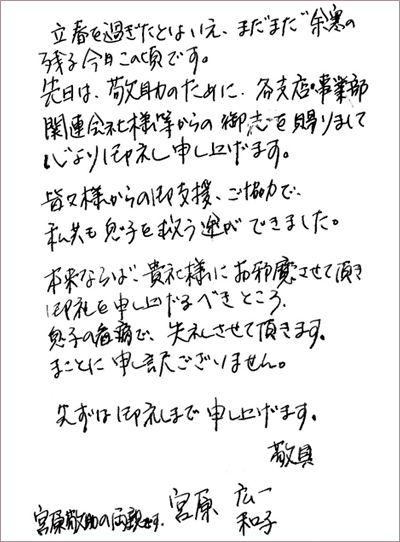 立春を過ぎたとはいえ、まだまだ余寒の
残る今日この頃です。
先日は、敬助のために、各支店・事業部
関連会社様等からの御志を賜りまして
心より御礼申し上げます。
皆々様からの御支援、ご協力で、
私共も息子を救う途ができました。
本来ならば、貴社様にお邪魔させて頂き
御礼を申し上げるべきところ、
息子の看病で、失礼させて頂きます。
まことに申し訳ございません。
先ずは御礼まで申し上げます。
敬具
宮原敬助の両親です。宮原 広一
和子